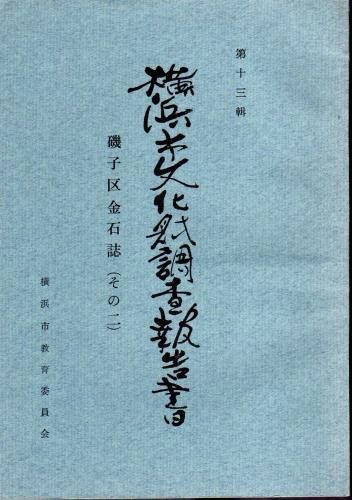 第十三輯
横浜市文化財調査報告書
磯子区金石誌(その二)
横浜市教育委員会